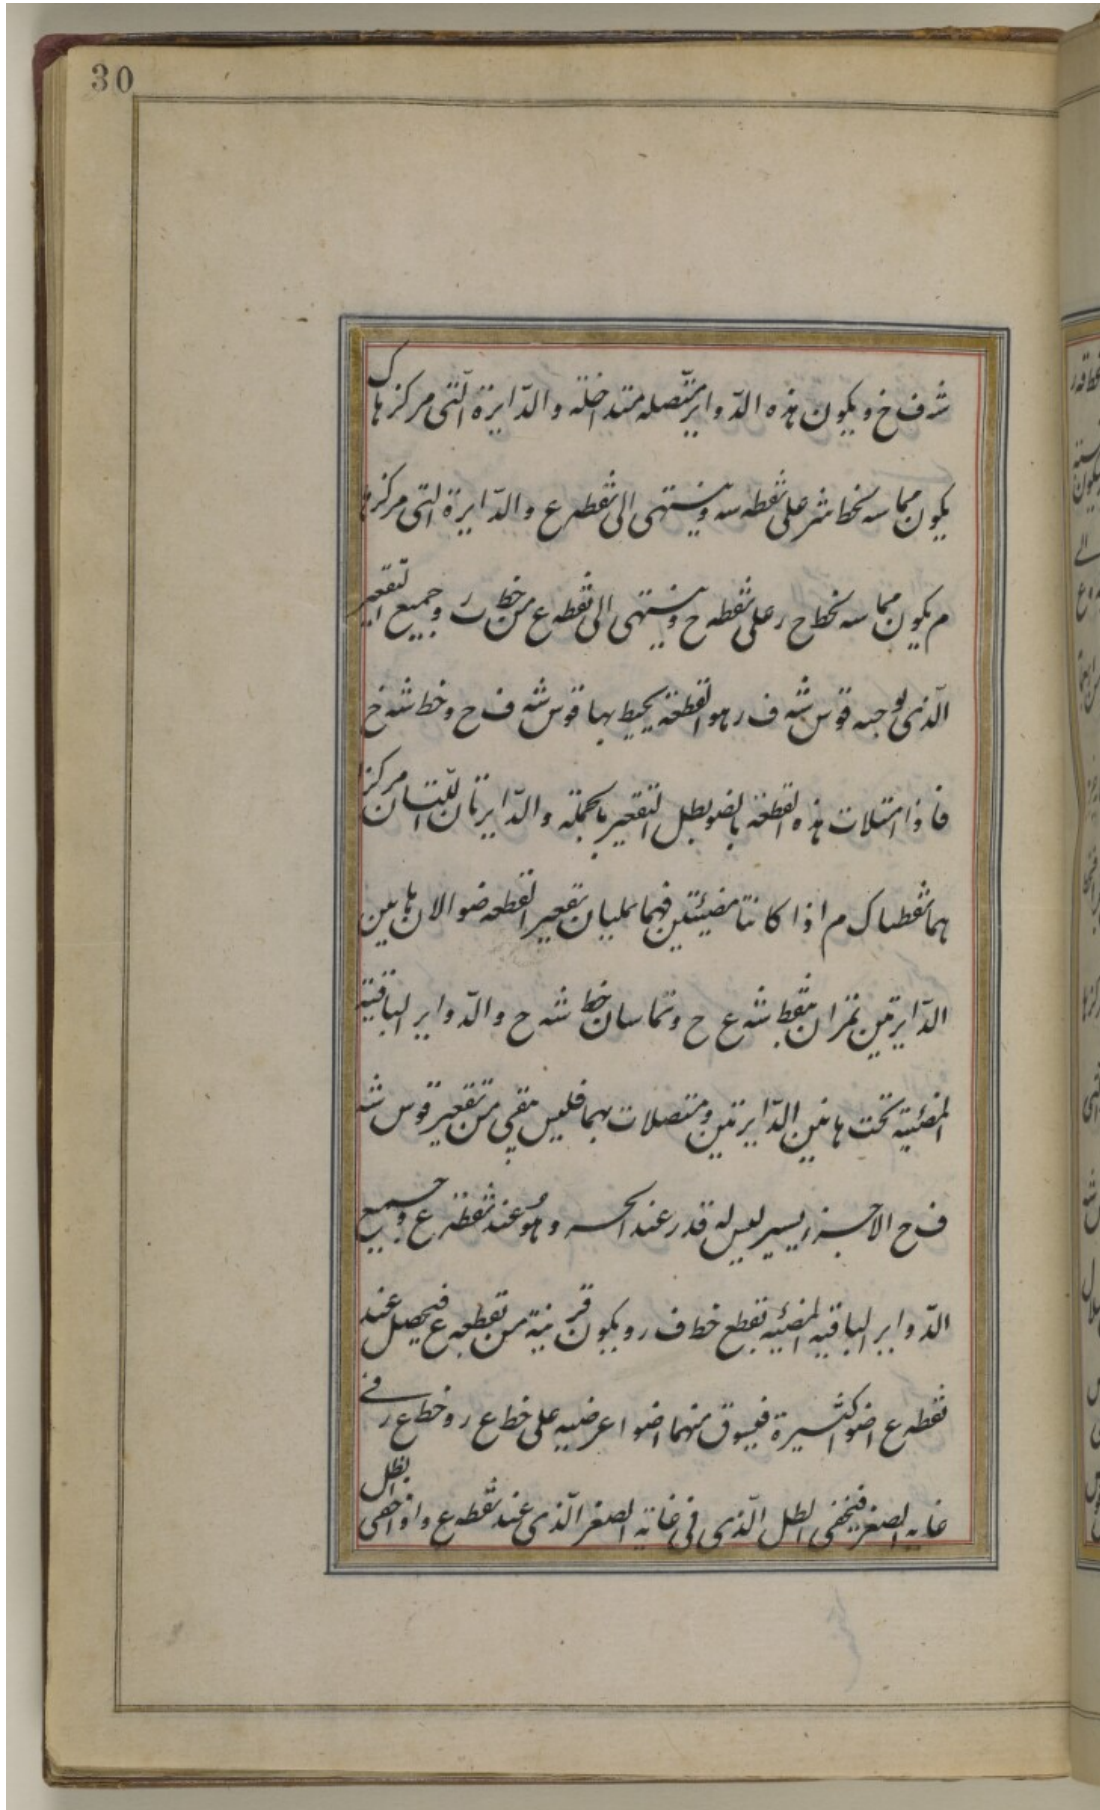 30
شه ف خ ويكون هذه الدّواير متّصله متداخلة والدّايرة الّتى مركزها ك
يكون مماسه لخط شر على نقطه سه وينتهى الى نقطه ع والدّايرة التى مركزها
م يكون مماسه لخط ح ر على نقطه ح وينتهى الى نقطه ع من خط ر وجميع التقعير
الّذى يوجبه قوس شه ف ر هو القطعة يحيط بها قوس شه ف ح وخط شه خ
فاذا امتلات هذه القطعة بالضو بطل التقعير بالجملة والدّايرتان اللتان مركزا
هما نقطتا ك م اذا كانتا مضيئتين فهما يمليان تقعير القطعه ضوا لان هاتين
الدّايرتين تمران بنقط شه ع ح وتماسان خط شه ح والدّواير الباقية
المضئية تحت هاتين الدّايرتين ومتصلات بهما فليس يبقى من تقعير قوس شه
ف ح الا جزء يسير ليس له قدر عند الحس وهو عند نقطة ع وجميع
الدّواير الباقيه المضئيه تقطع خط ف ر ويكون قريبة من نقطه ع فيحصل عند
نقطه ع اضوا كثيرة فيسوق منهما اضوا عرضيه على خط ع ر وخط ع ر فى
غايه الصغر فيخفى الظل الّذى فى غاية الصغر الّذى عند نقطه ع واذا خفى الظل